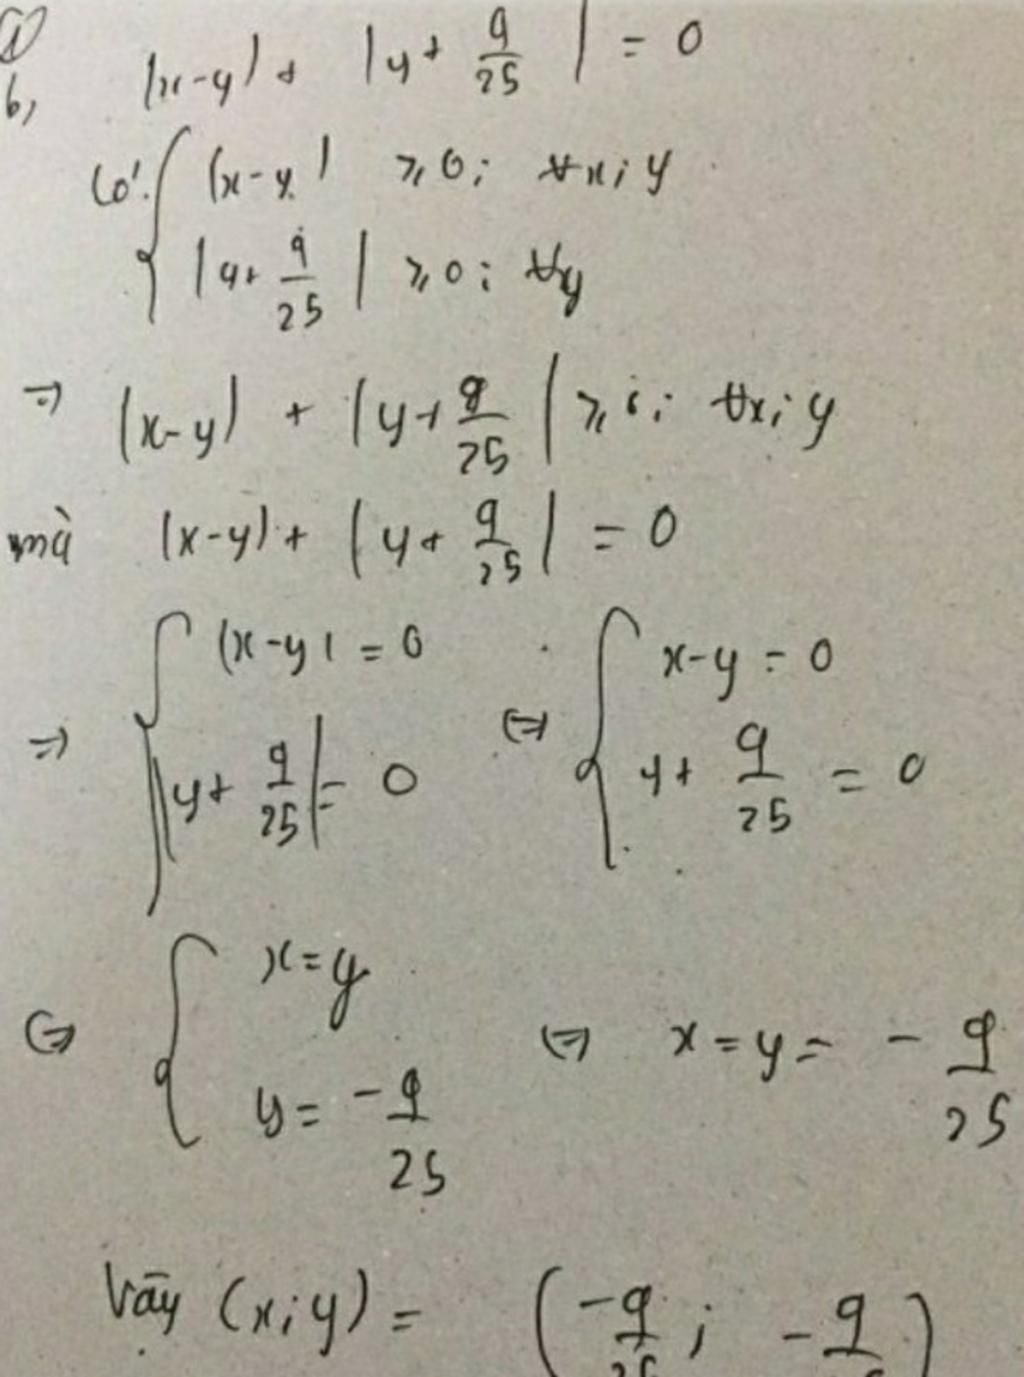 b, |x-y| + |y + 9/25| = 0
Có: { |x-y| ⩾ 0; ∀x; y
|y + 9/25| ⩾ 0; ∀y
=> |x-y| + |y + 9/25| ⩾ 0; ∀x; y
mà |x-y| + |y + 9/25| = 0
=> { |x-y| = 0 <=> { x-y = 0
|y + 9/25| = 0 y + 9/25 = 0
<=> { x = y
y = -9/25 <=> x = y = -9/25
Vậy (x;y) = (-9/25; -9/25)